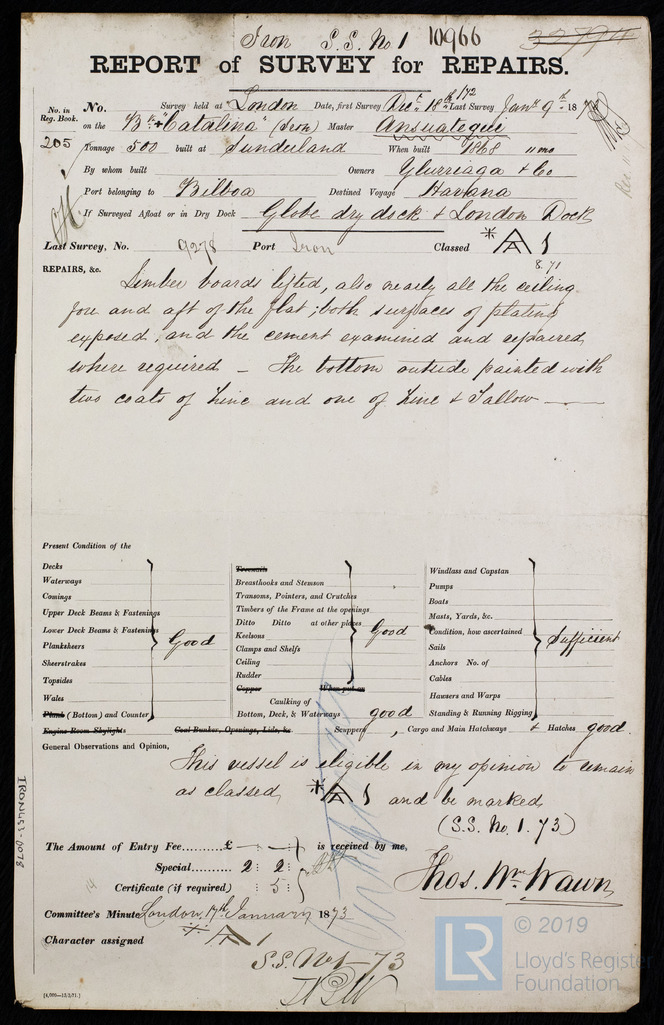 Iron S.S. No 1 10966 32794
REPORT of SURVEY for REPAIRS.
No. in Reg. Book. No. Survey held at London Date, first Survey Decr 18th /72 Last Survey Jany 9th 1873
205 on the Bk "Catalina" (Iron) Master Ansuategui
Tonnage 500 built at Sunderland When built 1868 11 mo
By whom built Owners Ylurriaga & Co
Port belonging to Bilboa Destined Voyage Havana
If Surveyed Afloat or in Dry Dock Globe dry dock & London Dock
Last Survey, No. 9278 Port Iron Classed A 1
8.71
REPAIRS, &c. Limber boards lifted, also nearly all the ceiling
fore and aft of the flat; both surfaces of plating
exposed, and the cement examined and repaired
where required - The bottom outside painted with
two coats of Zinc and one of Zinc & Tallow
Present Condition of the
Decks
Waterways
Comings
Upper Deck Beams & Fastenings
Lower Deck Beams & Fastenings
Planksheers Good
Sheerstrakes
Topsides
Wales
Plank (Bottom) and Counter
Engine Room Skylights
Treenails
Breasthooks and Stemson
Transoms, Pointers, and Crutches
Timbers of the Frame at the openings
Ditto Ditto at other places Good
Keelsons
Clamps and Shelfs
Ceiling
Rudder
Copper When put on
Caulking of
Bottom, Deck, & Waterways good
Coal Bunker, Openings, Lids, &c Scuppers, Cargo and Main Hatchways & Hatches good.
Windlass and Capstan
Pumps
Boats
Masts, Yards, &c.
Condition, how ascertained Sufficient
Sails
Anchors No. of
Cables
Hawsers and Warps
Standing & Running Rigging
General Observations and Opinion,
This vessel is eligible in my opinion to remain
as classed, A 1 and be marked
(S.S. No. 1. 73)
The Amount of Entry Fee.........£ - : - : is received by me,
Special......... 2 : 2 :
Certificate (if required) : 5 :
Thos. Wm Wawn
Committee's Minute London, 17th January 1873
Character assigned A 1
S.S. No 1 - 73
IRON453-0078
[4,000-13/2/71.]
© 2019
LR Lloyd's Register
Foundation